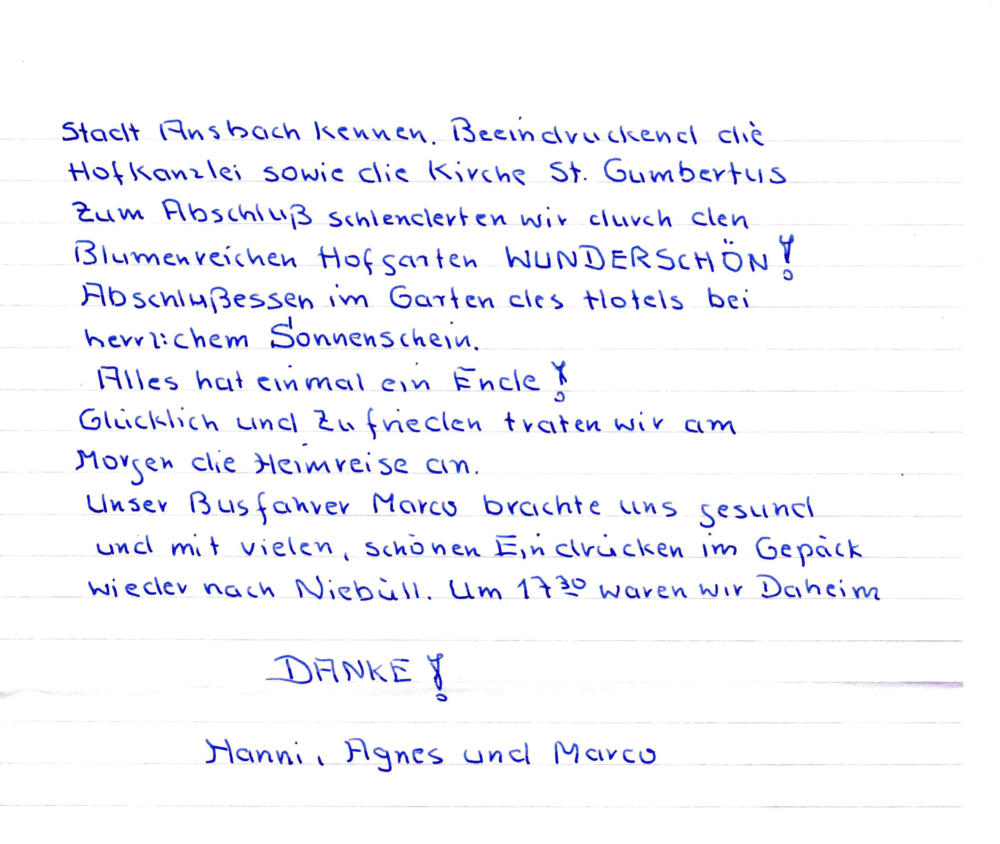 Stadt Ansbach kennen. Beeindruckend die
Hofkanzlei sowie die Kirche St. Gumbertus
Zum Abschluß schlenderten wir durch den
Blumenreichen Hofgarten WUNDERSCHÖN!
Abschlußessen im Garten des Hotels bei
herrlichem Sonnenschein.
Alles hat einmal ein Ende!
Glücklich und Zufrieden traten wir am
Morgen die Heimreise an.
Unser Busfahrer Marco brachte uns gesund
und mit vielen, schönen Eindrücken im Gepäck
wieder nach Niebüll. Um 17³⁰ waren wir Daheim
DANKE!
Hanni, Agnes und Marco